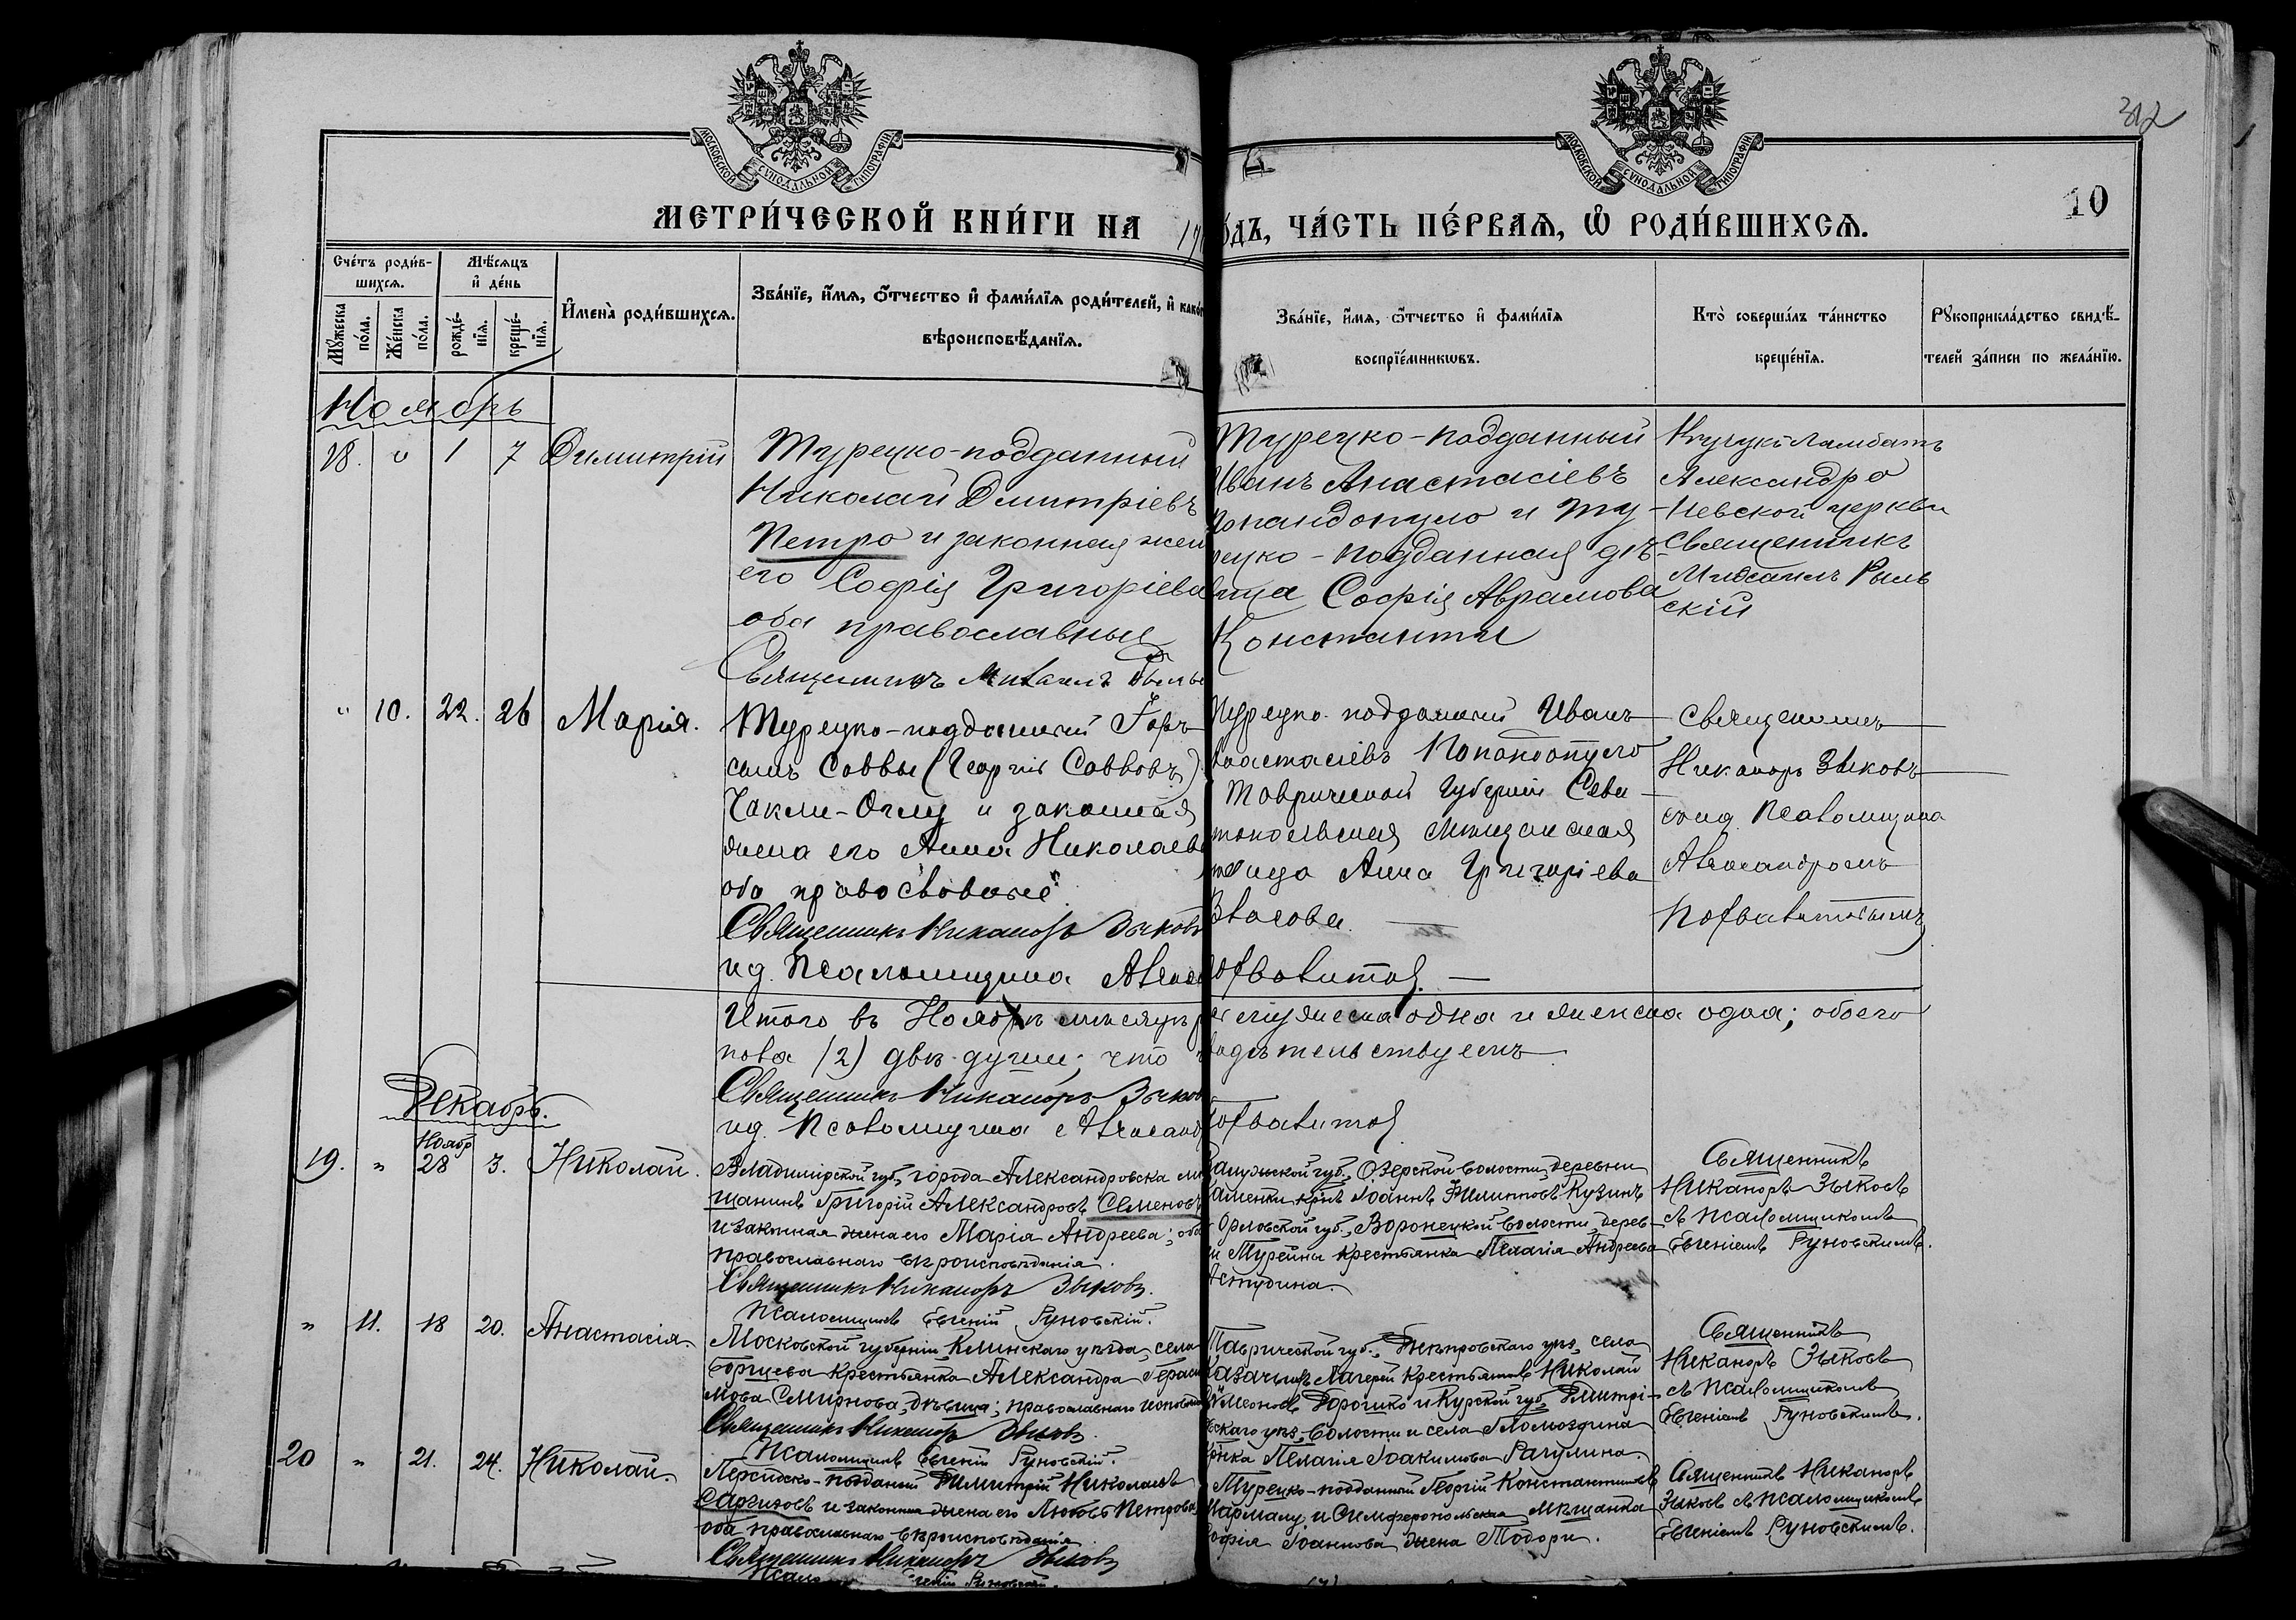 312
МОСКОВСКОЙ СѴНОДАЛЬНОЙ ТИПОГРАФІИ
МОСКОВСКОЙ СѴНОДАЛЬНОЙ ТИПОГРАФІИ
МЕТРИ́ЧЕСКОЙ КНИ́ГИ НА
ЧА́СТЬ ПЕ́РВАѦ, Ѡ РОДИ́ВШИХСѦ.
10
Сче́тъ роди́в-
шихсѧ.
Мꙋжеска по́ла.
Же́нска по́ла.
Мѣ́сѧцъ
и де́нь
рожде́нїѧ.
креще́нїѧ.
И҆мена̀ роди́вшихсѧ.
Зва́нїе, и҆́мѧ, ѻ҆́тчество и҆ фами́лїѧ роди́телей, и҆
вѣроисповѣ́данїѧ.
Зва́нїе, и҆́мѧ, ѻ҆́тчество и҆ фами́лїѧ
воспрїе́мникѡвъ.
Кто̀ соверша́лъ та́инство
креще́нїѧ.
Рꙋкоприкла́дство свидѣ́-
телей за́писи по жела́нїю.
Ноябрь
18. " 1 7 Димитрій
Турецко-подданный
Николай Дмитріевъ
Петро и законная жен
его Софія Григоріева
оба православные
Священникъ Михаилъ
Турецко-подданный
Иванъ Анастасіевъ
Попандопуло и Ту-
рецко-подданная дѣ-
вица Софія Аврамова
Константи
Кучукъ-Ламбатъ
Александро
Невской церкви
Священникъ
Михаилъ Рыль
скій
" 10. 22. 26 Марія.
Турецко-подданный
сынъ Саввы (Георгій Саввовъ)
Чакли-Оглу и законная
жена его Анна Николаев
оба православные
Священникъ Никаноръ Зыковъ
ид. Псаломщика
Турецко-подданный Иванъ
Анастасіевъ Попандопуло
Таврической Губерніи Сева-
стопольская Мѣщанская
дѣвица Анна Григоріева
Власова
Священникъ
Никаноръ Зыковъ
съ ид. Псаломщика
Александромъ
Итого въ Ноябрѣ мѣсяцѣ
мужеска одна и женска одна; обоего
пола (2) двѣ души, что
свидѣтельствуемъ
Священникъ Никаноръ Зыковъ
ид. Псаломщика Александ
Декабрь.
19. " Ноябр 28 3. Николай.
Владимірской губ., города Александровска мѣ
щанинъ Григорій Александровъ Семеновъ
и законная жена его Марія Андреева; оба
православнаго вѣроисповѣданія.
Священникъ Никаноръ Зыковъ.
Псаломщикъ Евгеній Руновскій.
губ., Озерской волости, деревни
Каменки кр-нъ Іоаннъ Филиповъ Кузинъ
Орловской губ., Воронецкой волости, дерев-
ни крестьянка Пелагія Андреева
Священникъ
Никаноръ Зыковъ
съ псаломщикомъ
Евгеніемъ Руновскимъ.
" 11. 18 20. Анастасія.
Московской губерніи, Клинскаго уѣзда, села
Борщева крестьянка Александра Гераси
мова Смирнова, дѣвица; православнаго исповѣд
Священникъ Никаноръ Зыковъ.
Псаломщикъ Евгеній Руновскій.
Таврической губ., Днѣпровскаго уѣз., села
Казачьихъ Лагерей крестьянинъ Николай
Симеоновъ Дорошко и Курской губ., Дмитрі-
евскаго уѣз., волости и села
Пелагія Іоакимова Рагулина.
Священникъ
Никаноръ Зыковъ
съ псаломщикомъ
Евгеніемъ Руновскимъ.
20 " 21. 24. Николай.
Персидско-подданый Димитрій Николаевъ
Саргизовъ и законная жена его Любовь Петрова,
оба православнаго вѣроисповѣданія.
Священникъ Никаноръ Зыковъ
Турецко-подданный Георгій Константиновъ
и Симферопольская мѣщанка
Софія Іоаннова жена Тодори.
Священникъ Никаноръ
Зыковъ съ псаломщикомъ
Евгеніемъ Руновскимъ.